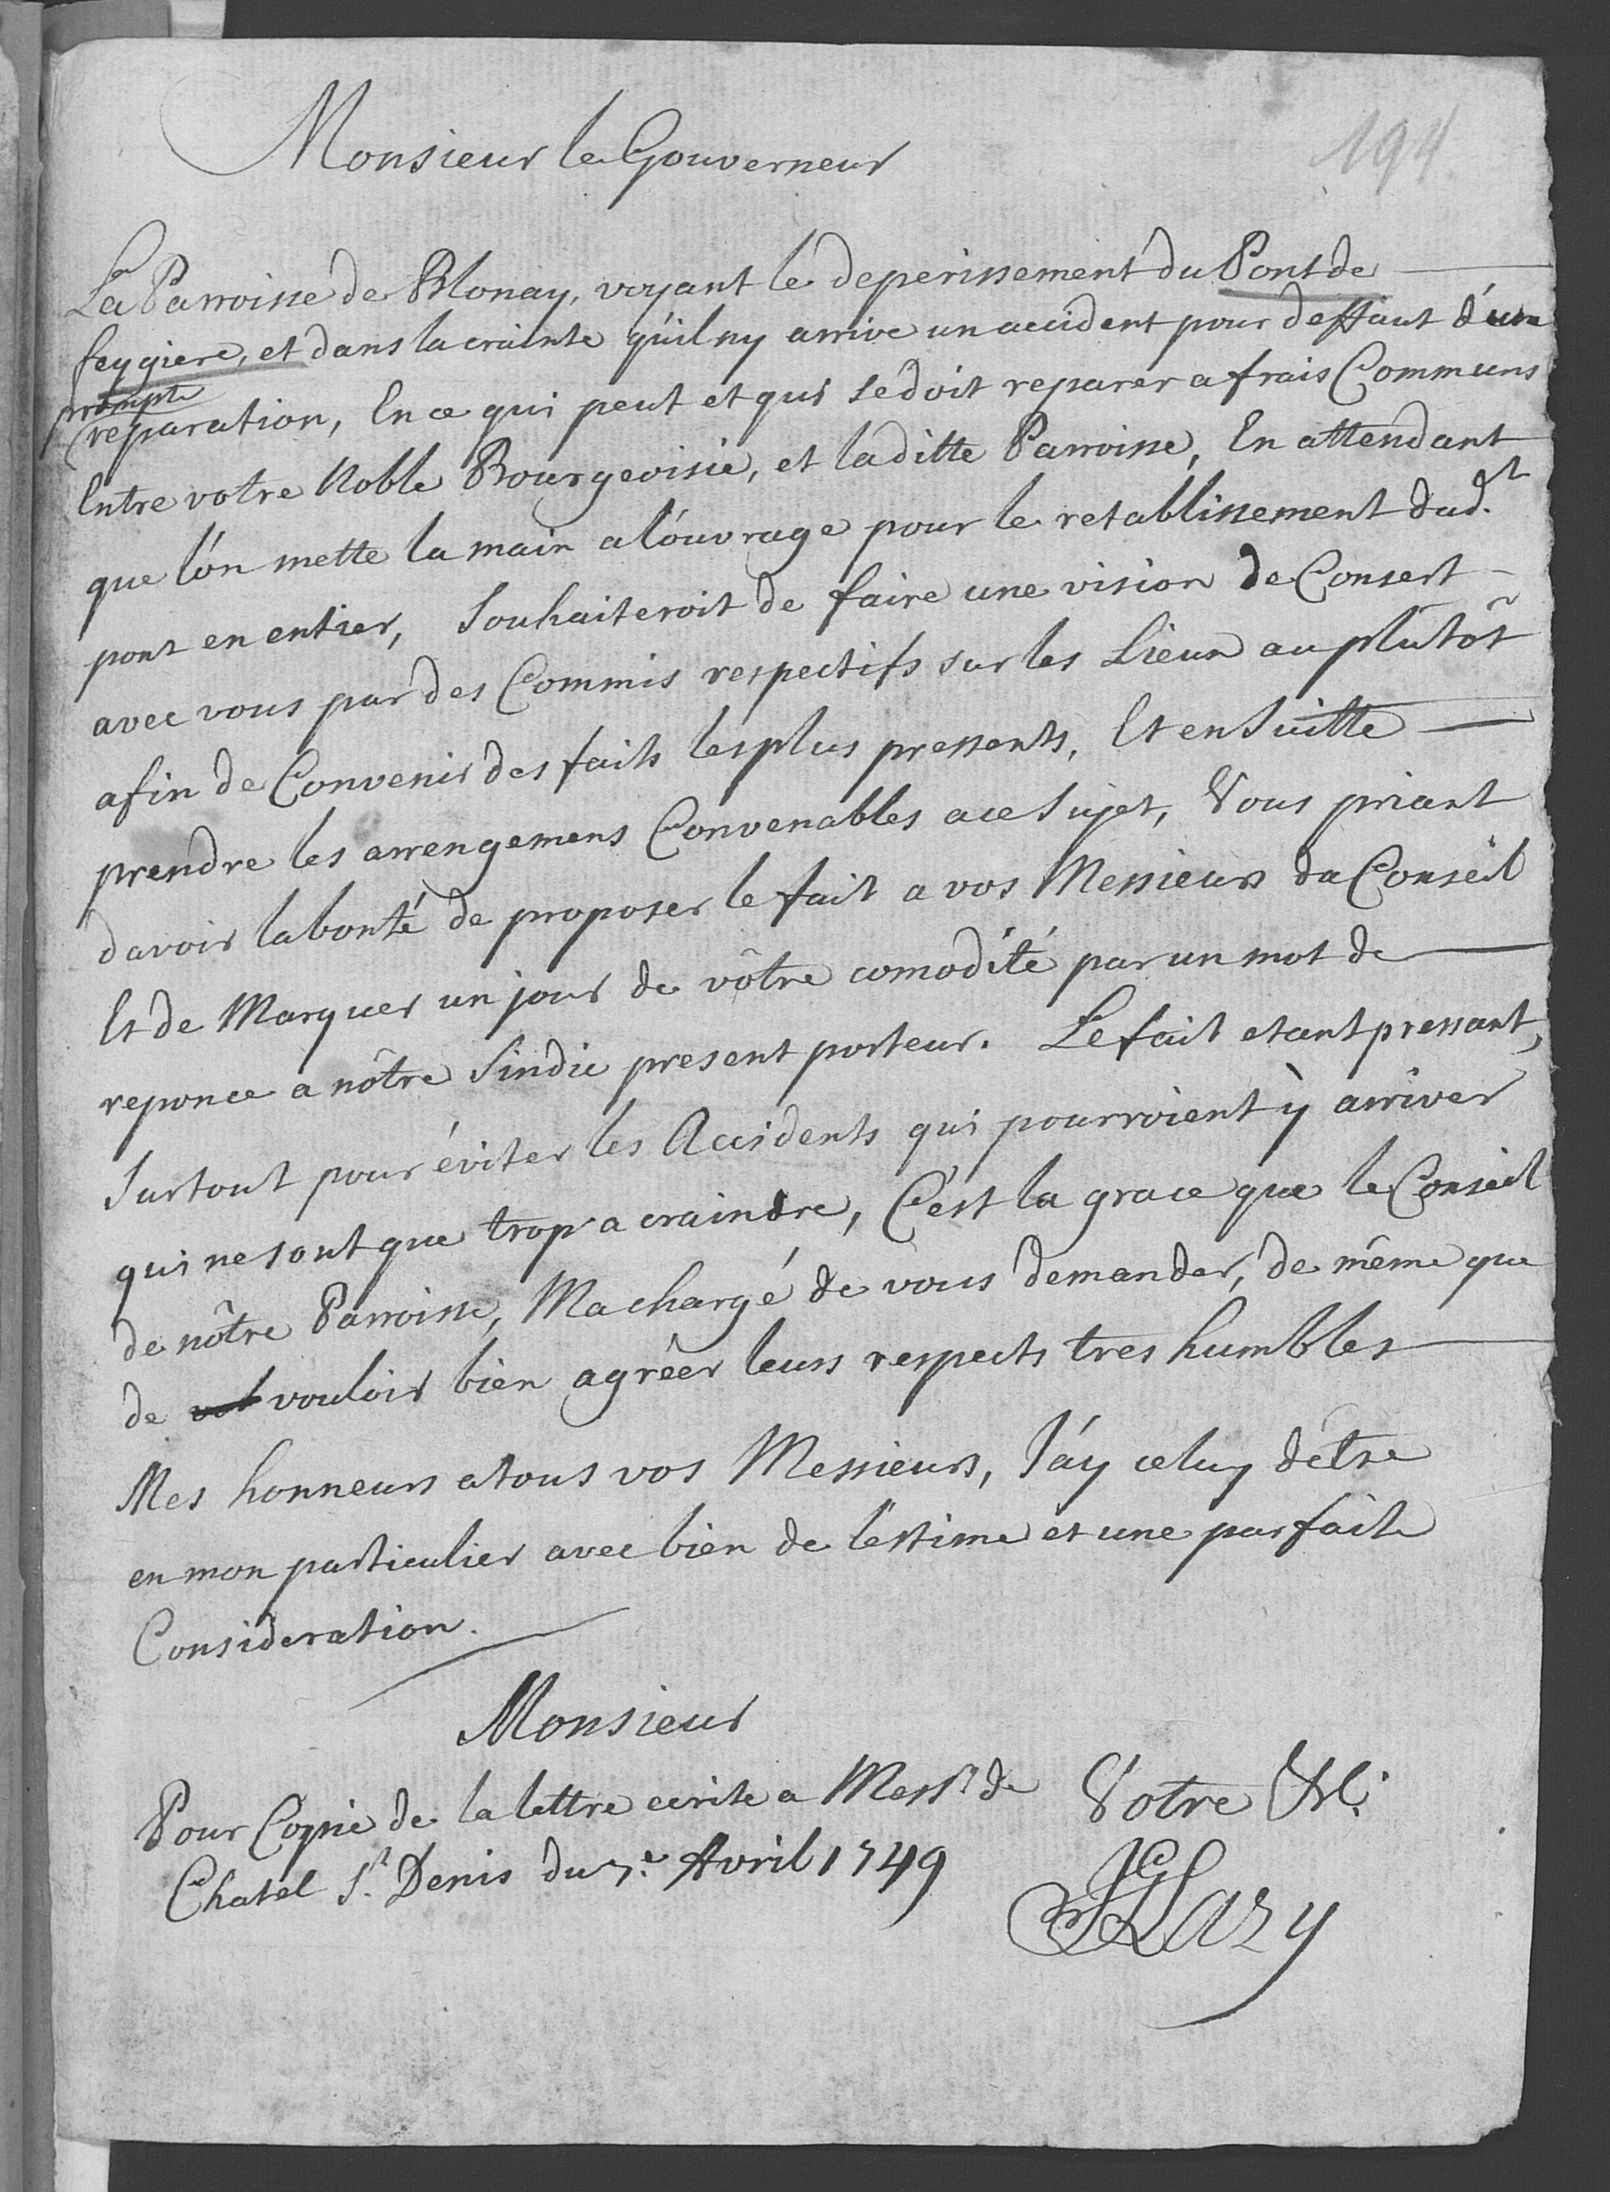 194
Monsieur le Gouverneur
La Parroisse de Blonay, voyant le deperissement du Pont de
feygiere, et dans la crainte qu'il ny arrive un accident pour deffaut d'une
prompte
reparation, En ce qui peut et qui se doit reparer a frais Communs
Entre votre Noble Bourgeoisie, et laditte Parroisse, En attendant
que l'on mette la main a l'ouvrage pour le retablissement dud.t
pont en entier, Souhaiteroit de faire une vision de Consert
avec vous par des Commis respectifs sur les Lieux au plûtôt
afin de Convenir des faits les plus pressents, Et en Suitte
prendre les arrengemens Convenables a ce Sujet, Vous priant
davoir la bonté de proposer le fait a vos Messieurs du Conseil
Et de Marquer un jour de vôtre comodité par un mot de
reponce a nôtre Sindic present porteur. Le fait etant pressant,
Surtout pour éviter les Accidents qui pourroient ÿ arriver
qui ne sont que trop a craindre, C'est la grace que le Conseil
de nôtre Parroisse, Ma chargé de vous demander, de même que
de vouloir bien agrêer leurs respects tres humbles
Mes honneurs a tous vos Messieurs, J'ay celuy dêtre
en mon particulier avec bien de l'estime et une parfaite
Consideration.
Monsieur
Pour Copie de la lettre ecrite a Mess.rs de
Chatel S.t Denis du 7.e Avril 1749
Votre &c.